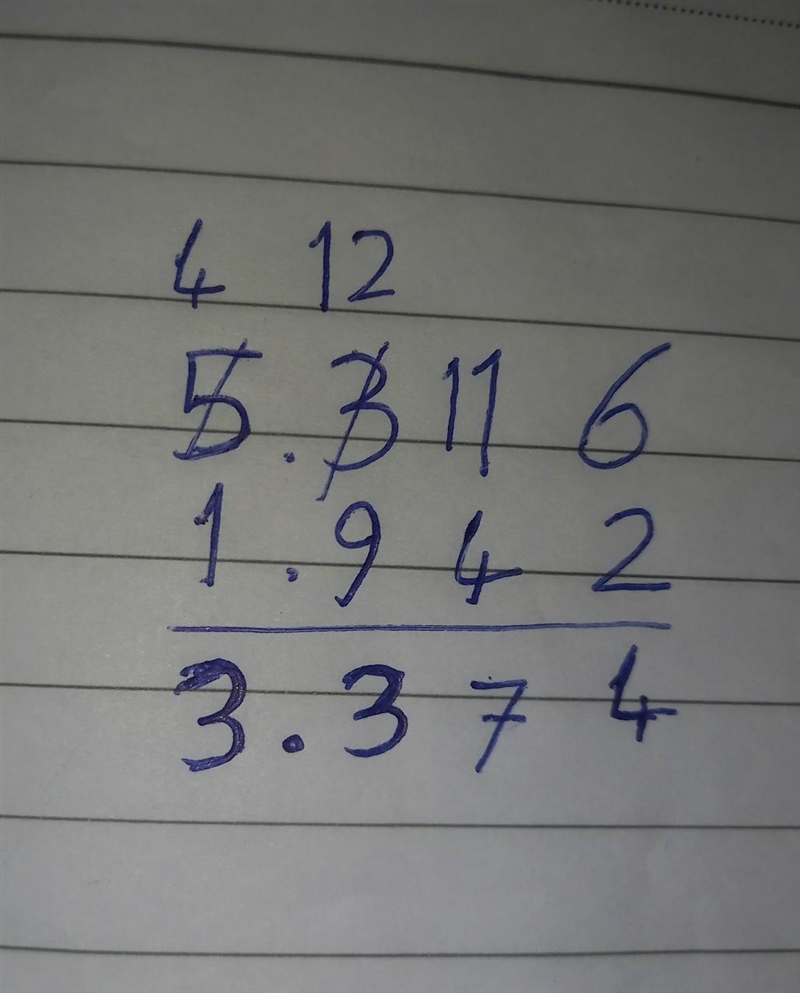 4 12
5.3 11 6
1.9 4 2
3.3 7 4